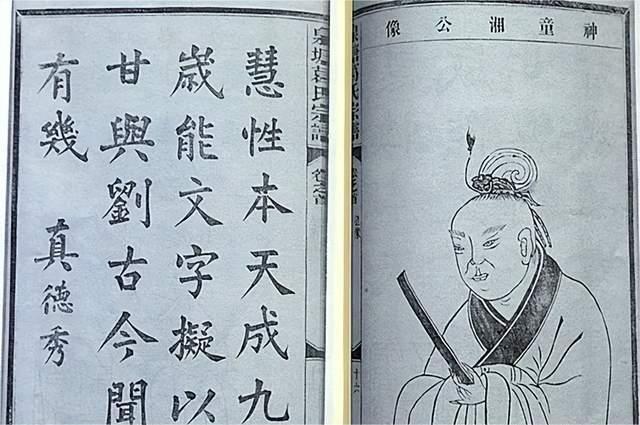 神童湘公像
慧性本天成九
歲能文字擬以
甘與劉古今聞
有幾 真德秀